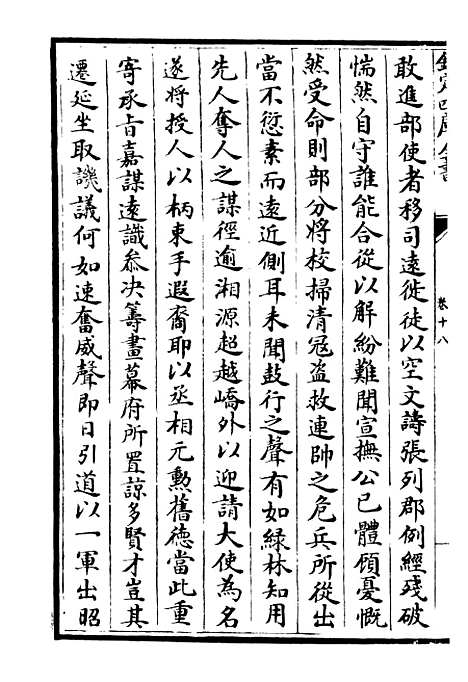 欽定四庫全書
卷十八
敢進部使者移司遠徙徒以空文譸張列郡例經殘破
惴然自守誰能合從以解紛難聞宣撫公已體顧憂慨
然受命則部分將校掃清冦盗救連帥之危兵所從出
當不愆素而遠近側耳未聞鼓行之聲有如緑林知用
先人奪人之謀徑逾湘源超越嶠外以迎請大使為名
遂將授人以柄束手遐裔耶以丞相元勲舊德當此重
寄承㫖嘉謀遠識叅决籌畫幕府所置諒多賢才豈其
遷延坐取譏議何如速奮威聲即日引道以一軍出昭